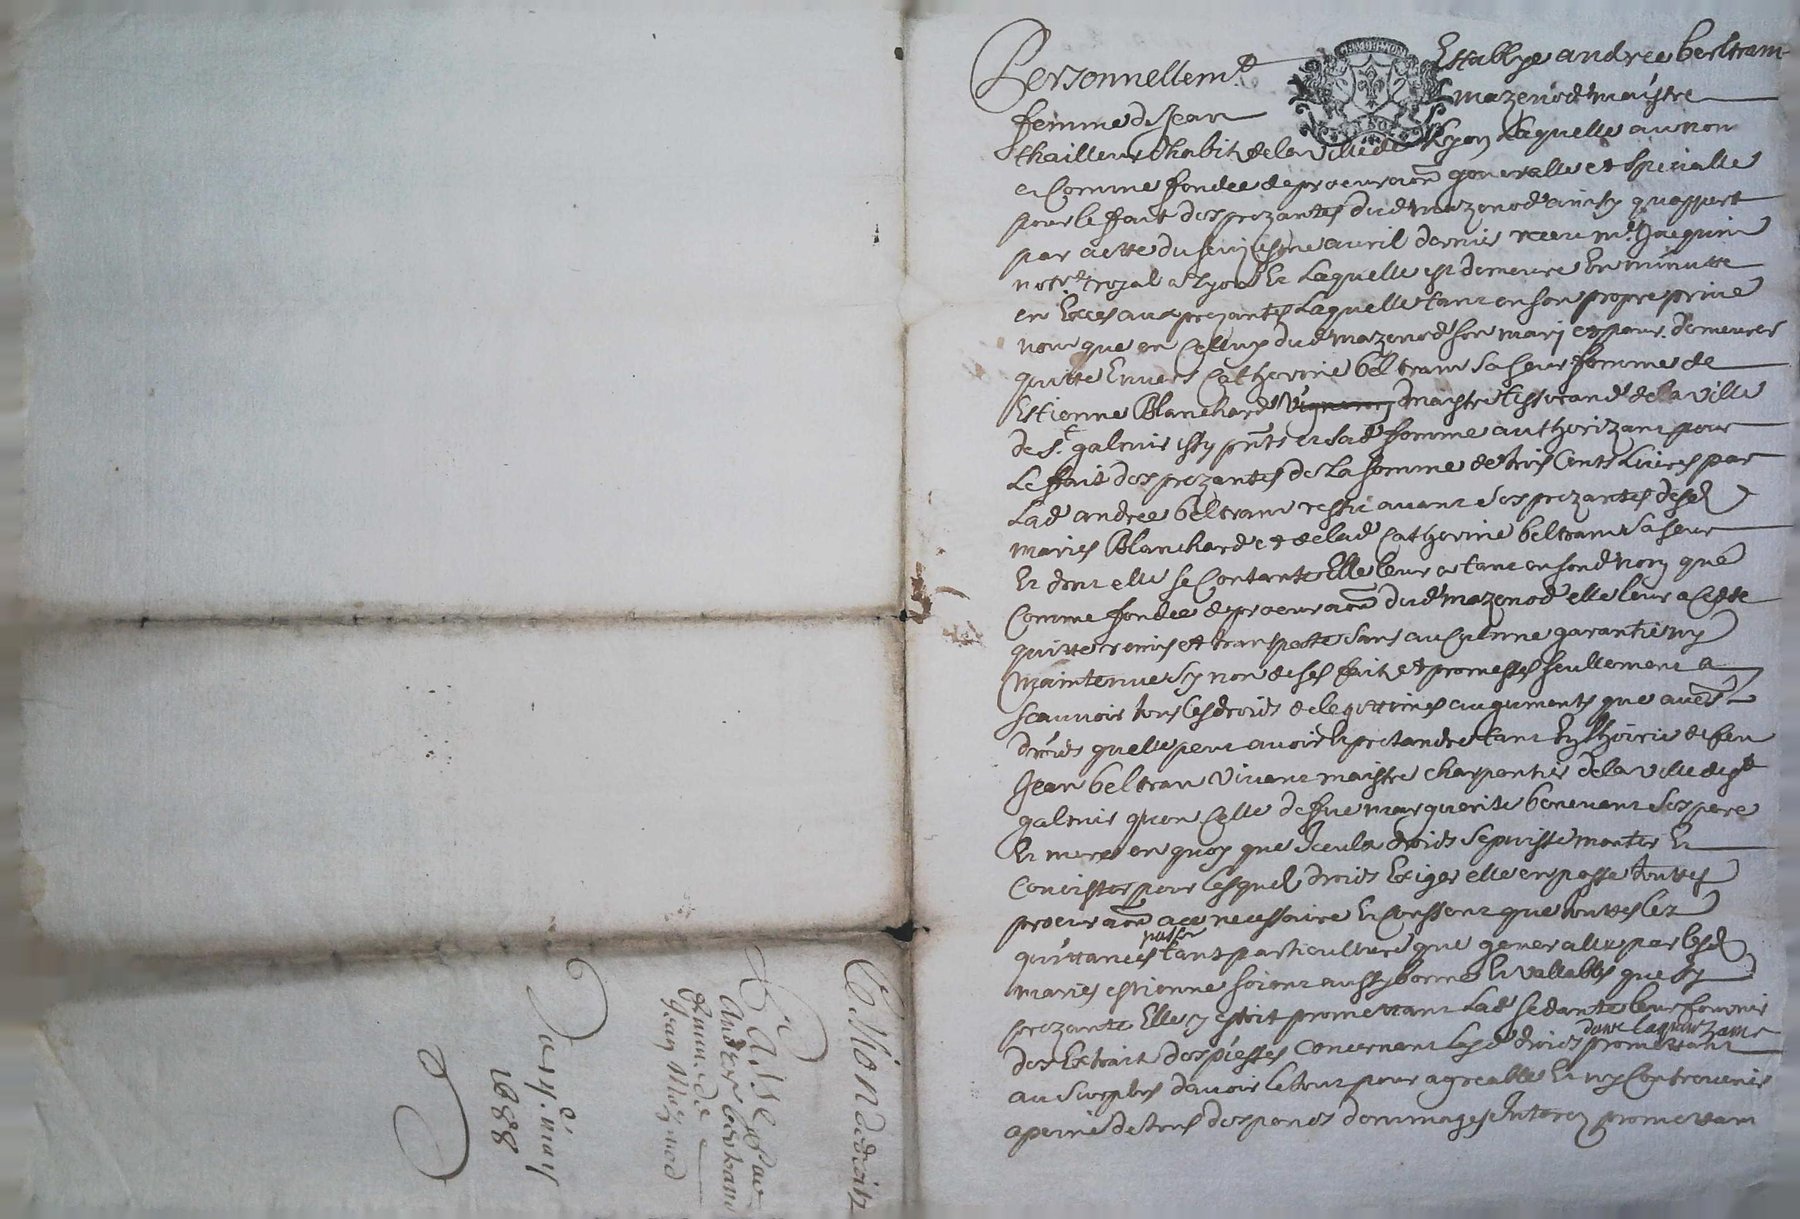 Personnellemt Establye andree beltram
femme de Jean mazenod maistre
thailleur dhabit de la ville de Lyon Laquelle au nom
et Comme fondee de procuraon generalle et specialle
pour le fait des prezantes dud mazenod ainsy quappert
par acte du avril dernier receu me Jacquin
notre royal a Lyon Et Laquelle est demeuree En minutte
en Exces aux prezantes Laquelle tant en son propre prive
nom que en celluy dud mazenod son mary et pour demeurer
quitte Envers Catherine beltram sa seur femme de
Estienne Blanchard maistre tisserand de la ville
de St galmier issy pnts et sad femme authorizant pour
Le fait des prezantes de La somme de trois Cents Livres par
Lad andree beltram resseu avant ses prezantes desd
maries Blanchard et de lad Catherine beltram sa seur
Et dont elle se Contante Elle leur a tant en sond nom que
Comme fondee de procuraon dud mazenod elle leur a Cedde
quitte remis et transporte sans aucunne garantie ny
maintenue sy non de ses fait et promesses seullement a
scauvoir tous les droits de legittimes auguments que aues
droits quelle peut avoir Et pretandre tant En Lhoirie de feu
Jean beltran vivant maistre charpentier de la ville de St
galmier quen Celle de fue marguerite benevent ses pere
Et mere en quoy que Iceulx droits se puisse monter Et
Concister pour lesquel droits Exiger elle en passe touttes
procuraon a ce necessaire Et Conssent que touttes les
quittances passer tant particulliere que generalle par lesd
maries estienne soient aussy bonnes Et vallables que sy
prezante Elle y estoit promettant Lad sedante leur fournir
des Extrait des piesses Concernant lesd droits promettant
au surplus davoir le tout pour agreable Et ny Contrevenir
a peine de tous despans dommages Interez promettant
Cession de droitz
Faitse par
Andree bertrand
femme de
Jean Mazenod
Du 1688